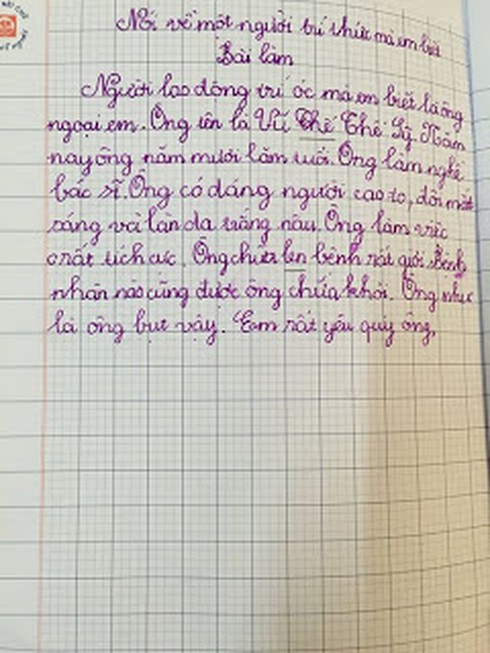 Nói về một người trí thức mà em biết
Bài làm
Người lao động trí óc mà em biết là ông
ngoại em. Ông tên là Vũ Thế Thế Sỹ. Năm
nay ông năm mươi lăm tuổi. Ông làm nghề
bác sĩ. Ông có dáng người cao to, đôi mắt
sáng và làn da trắng nâu. Ông làm việc
rất tích cực. Ông chữa bệnh rất giỏi. Bệnh
nhân nào cũng được ông chữa khỏi. Ông như
là ông bụt vậy. Eam rất yêu quý ông.